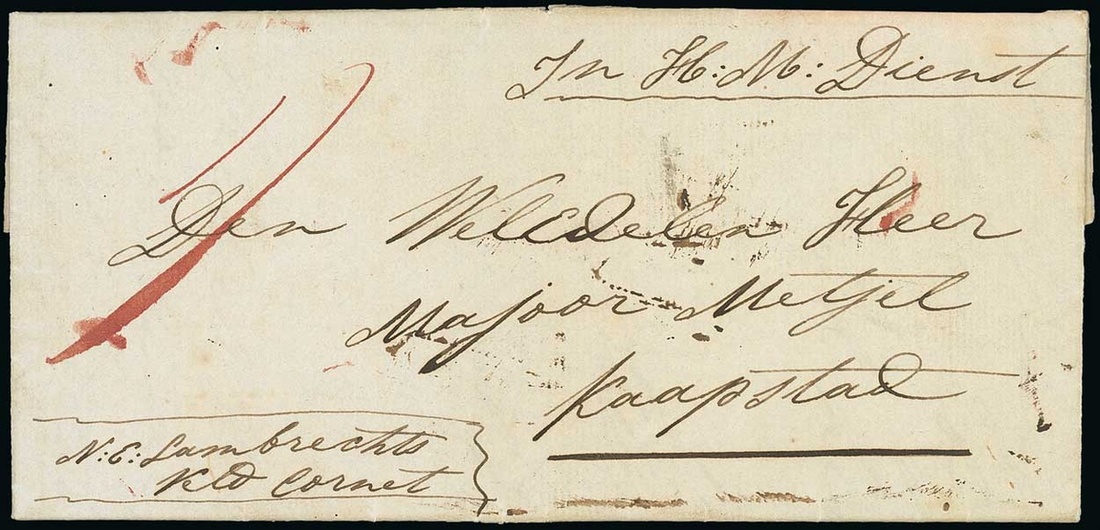 In H: M: Dienst
Den WelEdelen Heer
Majoor Metjel
Kaapstad
N: E: Lambrechts
Vld Cornet